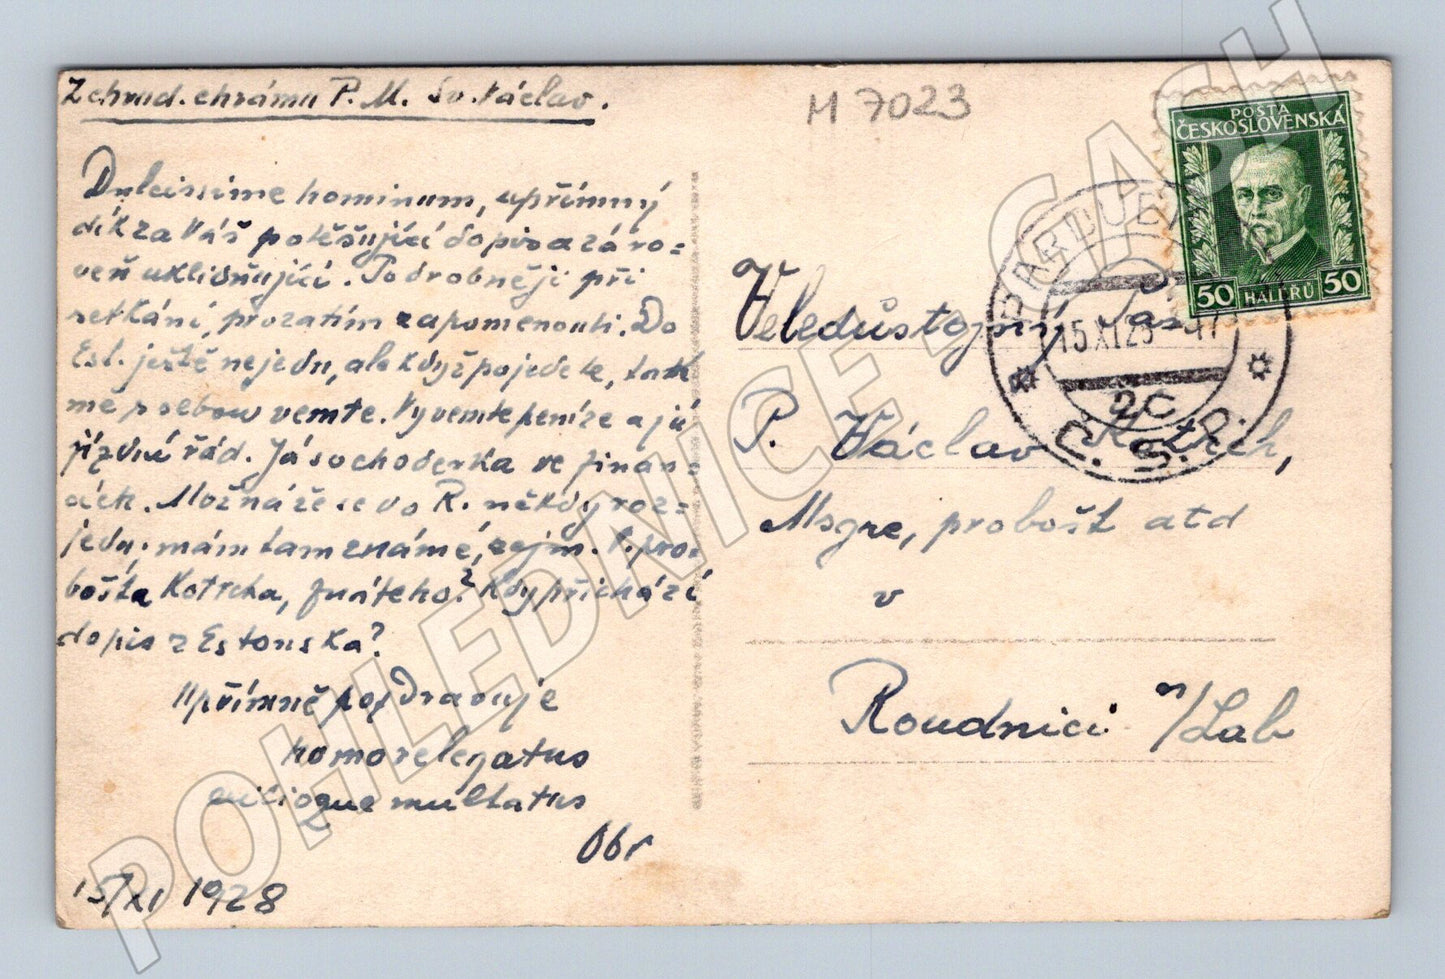 Z chrud. chrámu P. M. Sv. Václav.
Dulcissime hominum, upřímný
dík za Váš potěšující dopis a záro=
veň uklidňující. Podrobněji při
setkání, prozatím zapomenouti. Do
Est. ještě nejedu, ale když pojedete, tak
mě s sebou vemte. Vy vemte peníze a já
jízdní řád. Já su choderka ve finan=
cích. Možná že se do R. někdy roz=
jedu. mám tam známé, zejm. V. pro=
bošta Kotrcha, znáte ho? Kdy přichází
dopis z Estonska?
Upřímně pozdravuje
homo relegatus
multatus
Obr
15/XI 1928
M 7023
POŠTA
ČESKOSLOVENSKÁ
50 HALÉŘŮ 50
PARDUBICE
15.XI.28 -17
2C
Č.S.P.
Veledůstojný Pan
P. Václav Kotrch,
Msgre, probošt atd
v
Roudnici n/Lab
POHLEDNICE - CASH